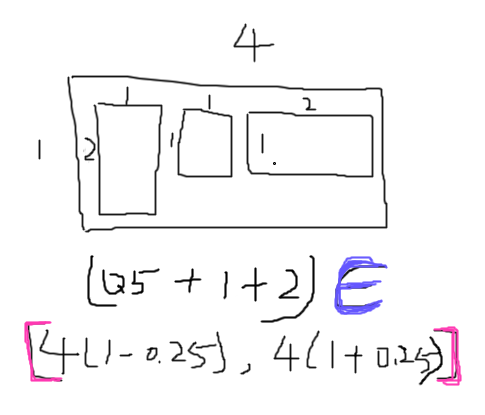 4
1 1 2
1 2 1 1
(0.5 + 1 + 2) E
[4(1 - 0.25), 4(1 + 0.25)]